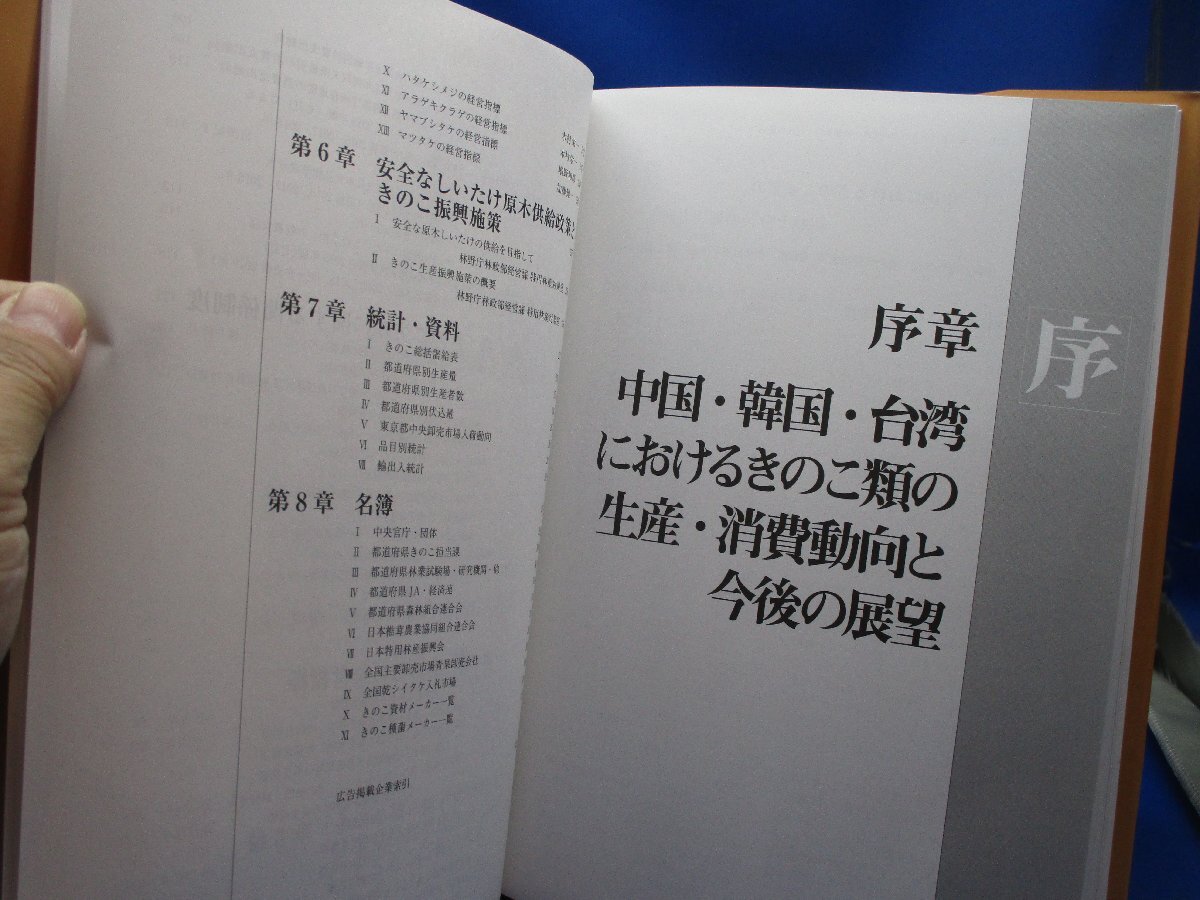 X ハタケシメジの経営指標
XI アラゲキクラゲの経営指標
XII ヤマブシタケの経営指標
XIII マツタケの経営指標
第6章 安全なしいたけ原木供給政策と
きのこ振興施策
I 安全な原木しいたけの供給を目指して
林野庁林政部経営課
II きのこ生産振興施策の概要
林野庁林政部経営課
第7章 統計・資料
I きのこ総括需給表
II 都道府県別生産量
III 都道府県別生産者数
IV 都道府県別伏込量
V 東京都中央卸売市場入荷動向
VI 品目別統計
VII 輸出入統計
第8章 名簿
I 中央官庁・団体
II 都道府県きのこ担当課
III 都道府県林業試験場・研究機関・他
IV 都道府県JA・経済連
V 都道府県森林組合連合会
VI 日本椎茸農業協同組合連合会
VII 日本特用林産振興会
VIII 全国主要卸売市場青果卸売会社
IX 全国乾シイタケ入札市場
X きのこ資材メーカー一覧
XI きのこ種菌メーカー一覧
広告掲載企業索引
序章
中国・韓国・台湾
におけるきのこ類の
生産・消費動向と
今後の展望
序